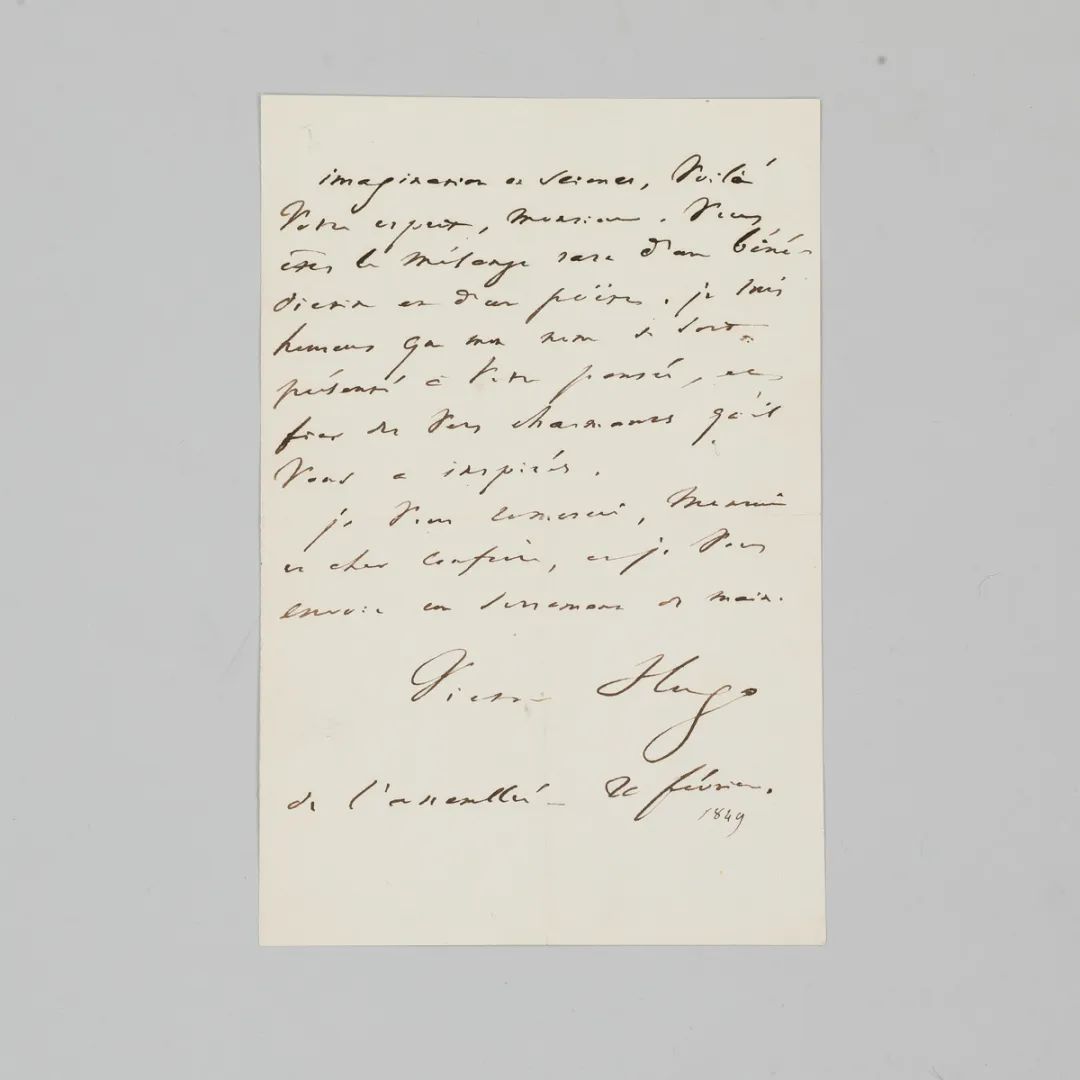 imagination et science, Voilà
Votre esprit, Monsieur. Vous
êtes le mélange rare d'un béné-
dictin et d'un poëte. je suis
heureux que mon nom se soit
présenté à Votre pensée, et
fier des Vers charmants qu'il
Vous a inspirés.
je Vous remercie, Monsieur
et cher confrère, et je Vous
envoie un serrement de main.
Victor Hugo
de l'assemblée — février.
1849